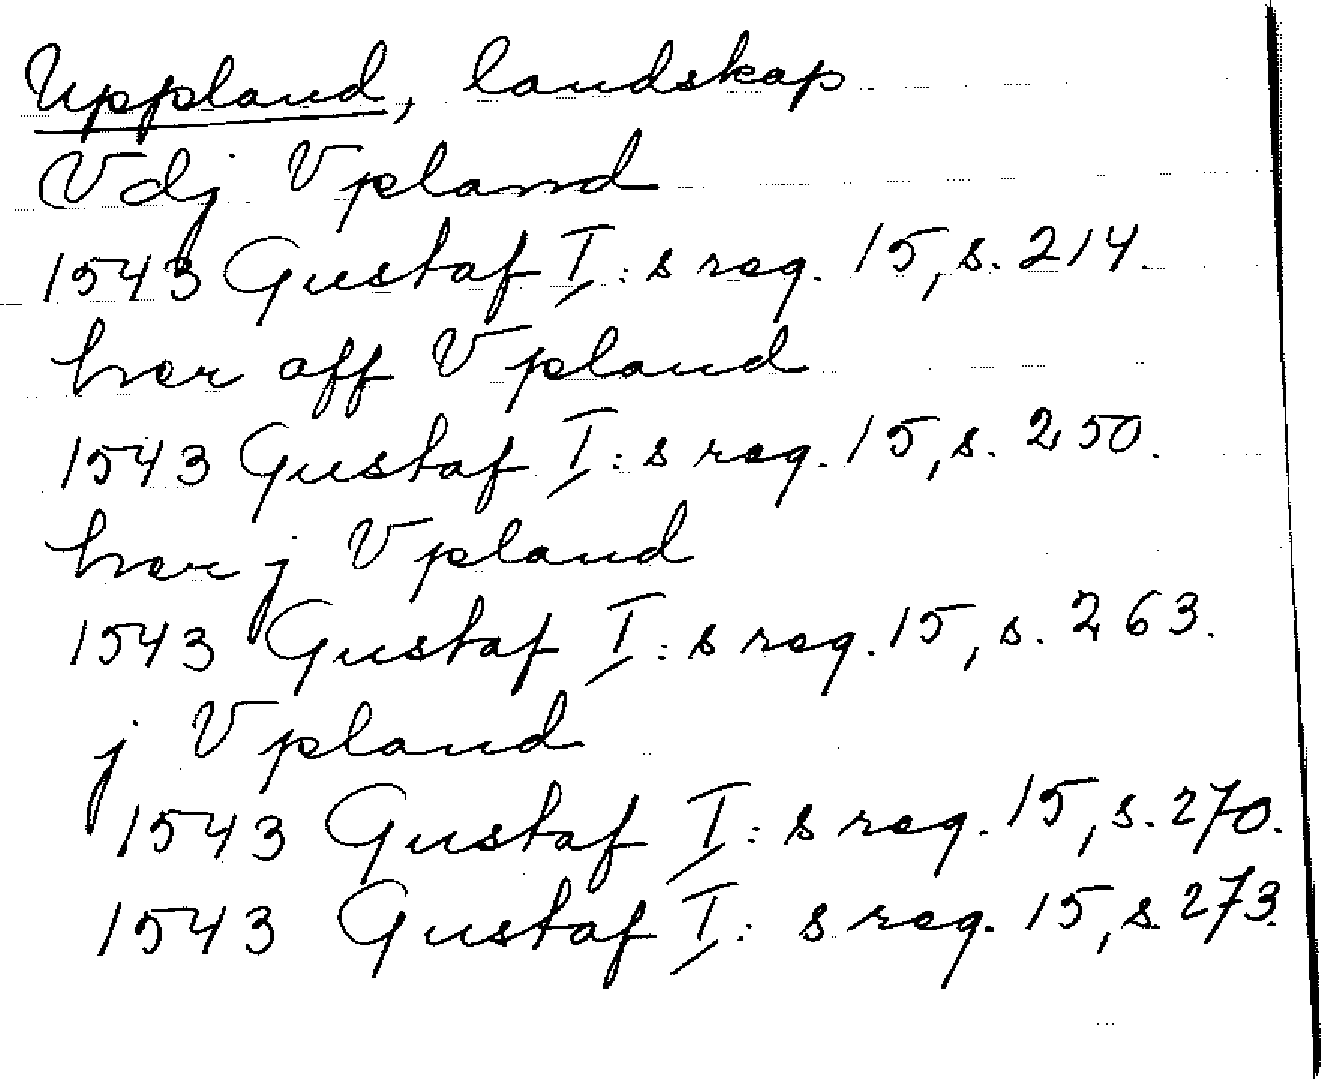 Uppland, landskap
Vdj Vpland
1543 Gustaf I:s reg. 15, s. 214.
hver aff Vpland
1543 Gustaf I:s reg. 15, s. 250.
hver j Vpland
1543 Gustaf I:s reg. 15, s. 263.
j Vpland
1543 Gustaf I:s reg. 15, s. 270.
1543 Gustaf I:s reg. 15, s. 273.